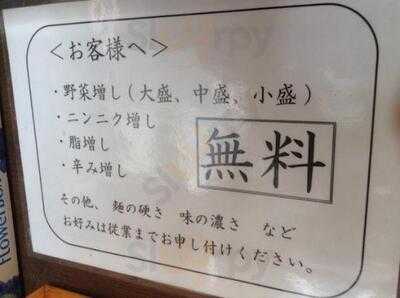 ＜お客様へ＞
・野菜増し（大盛、中盛、小盛）
・ニンニク増し
・脂増し
・辛み増し
無料
その他、麺の硬さ 味の濃さ など
お好みは従業までお申し付けください。